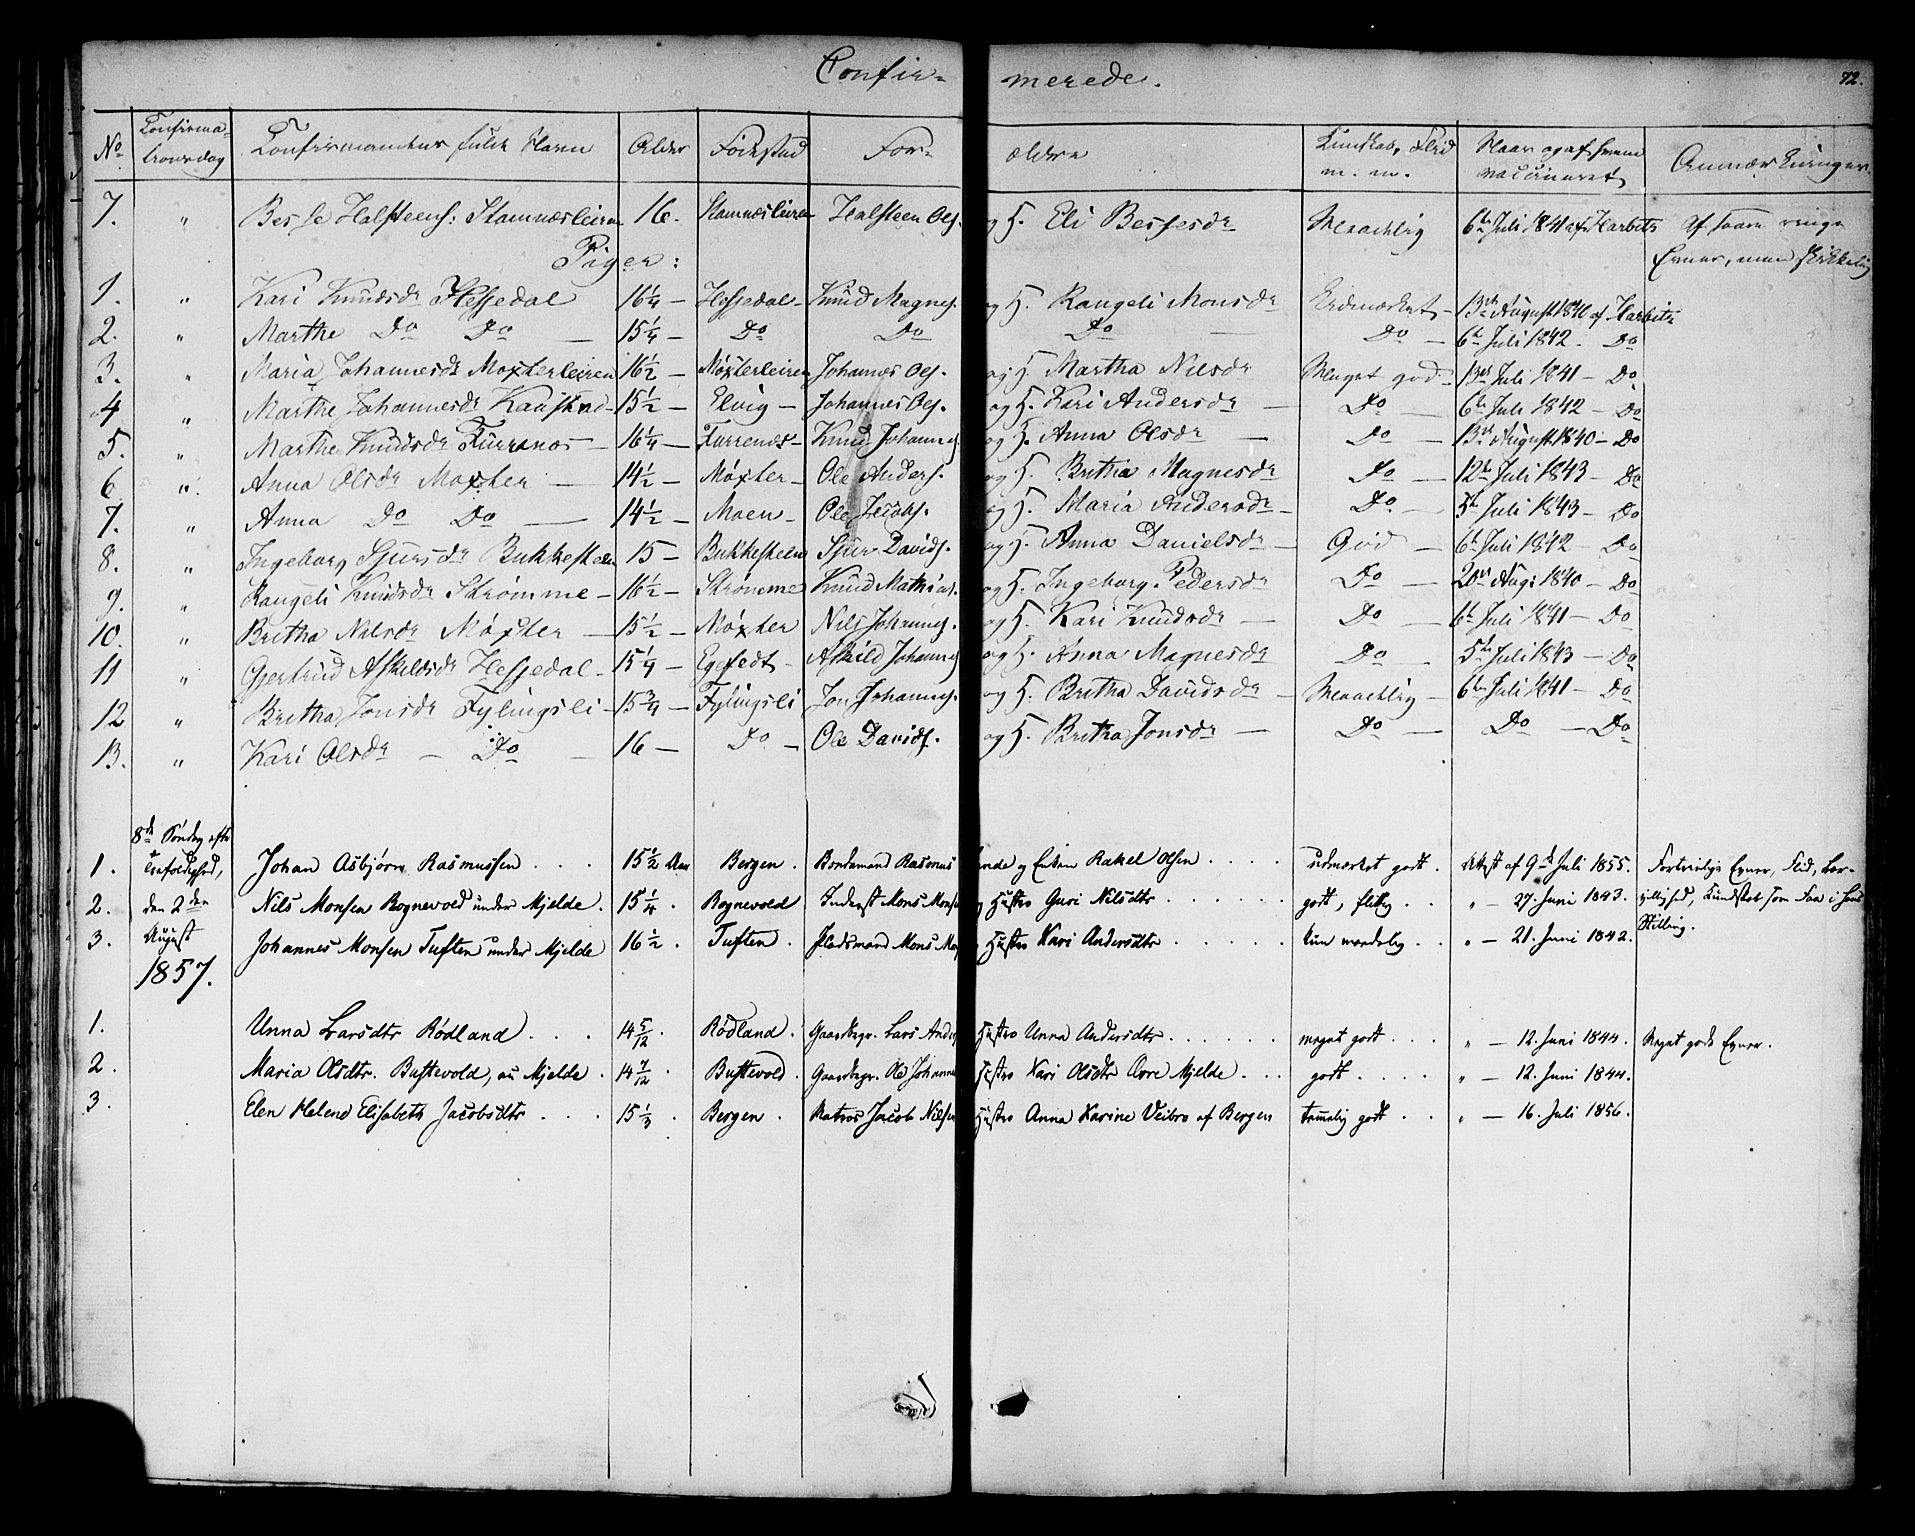 Confir= merede. 72.
No. Confirma- tionsdag Confirmandens fulde Navn Alder Fødestad For- ældre Kundskab, Flid m. m. Naar og af hvem vaccineret Anmærkninger
7. " Besse Halsteens: Stamnæsleiren 16. Stamnæsleiren Halsteen Ols. og H. Eli Bessesdr Maadelig 6te Juli 1841 af Harbitz Af svare ringe
Evner, men skikkelig
Piger:
1. " Kari Knudsdr Hessedal 16 1/4 — Hessedal Knud Magnes. og H. Rangeli Monsdr Udmærket — 13de August 1840 af Harbitz
2. " Marthe Do Do — 15 1/4 — Do Do Do — Do — 6te Juli 1842. Do
3. " Maria Johannesdr Moxterleiren 16 1/2 — Moxterleiren Johannes Ols. og H. Martha Nilsdr Meget god — 13de Juli 1841 — Do
4 " Marthe Johannesdr 15 1/2 — Elvig — Johannes Ols. og H. Kari Andersdr — Do — 6te Juli 1842 — Do
5. " Marthe Knudsdr Furrenæs — 16 1/4 — Furrenæs — Knud Johannes og H. Anna Olsdr — Do — 13de August 1840 — Do
6 " Anna Olsdr Moxter — 14 1/2 — Møxter — Ole Anders. og H. Britha Magnesdr Do — 12te Juli 1843 — Do
7. " Anna Do Do — 14 1/2 — Moen — Ole Jacobs. og H. Maria Andersdr — Do — 5te Juli 1843 — Do
8. " Ingeborg Sjursdr Bukkesteen 15 — Bukkesteen Sjur Davids. og H. Anna Danielsdr — God — 6te Juli 1842 — Do
9. " Rangeli Knudsdr Strømme — 16 1/2 — Strømme Knud Mathias. og H. Ingeborg Pedersdr Do — 20de Aug: 1840 — Do
10. " Britha Nilsdr Møxter — 15 1/2 — Møxter Nils Johannes. og H. Kari Knudsdr — Do — 6te Juli 1841 — Do
11 " Gjertrud Askildsdr Hessedal — 15 1/4 — Askild Johannes og H. Anna Magnesdr Do — 5te Juli 1843 — Do
12 " Britha Jonsdr Fylingsli — 15 3/4 — Fylingsli Jon Johannes. og H. Britha Davidsdr — Maadelig — 6te Juli 1841 — Do
13. " Kari Olsdr — Do — 16 — Do — Ole Davids. og H. Britha Jonsdr — Do — Do — Do
8de Søndag efter
1. Trefoldighed, Johan Asbjørn Rasmussen . . . 15 1/2 Aar Bergen. Bondemand Rasmus og Enken Rakel Olsen . . . . udmærket godt . Attest af 9de Juli 1855. Fortrinlige Evner, Flid, Lær-
2. den 2den Nils Monsen Bognevold under Mjelde. 15 1/4 Bognevold Inderst Mons Monsen og Hustro Guri Nilsdtr . . . . . . godt, flittig . . " — 27. Juni 1843. villighed, Kundskab som Faa i hans
3. August Johannes Monsen Tuften under Mjelde 16 1/2 . Tuften . Pladsmand Mons og Hustro Kari Andersdtr . . . . . kun maadelig . . " — 21. Juni 1842. Stilling.
1857.
1. Anna Larsdtr Rødland . . . 14 5/12 . Rødland . Gaardbgr. Lars Anders Hustro Anna Andersdtr . . . . . . meget godt . . . " — 12. Juni 1844. Meget gode Evner.
2. Maria Olsdtr. Bustevold, nu Mjelde . 14 7/12 . Bustevold . Gaardbgr. Ole Johannes Hustro Kari Olsdtr Øvre Mjelde . . . godt . . . . " — 12. Juni 1844.
3. Elen Helene Elisabeth Jacobsdtr . . . 15 1/3 . Bergen . Matros Jacob Nilsen Hustro Anna Karine Veibro af Bergen temmelig godt . . " — 16. Juli 1856.